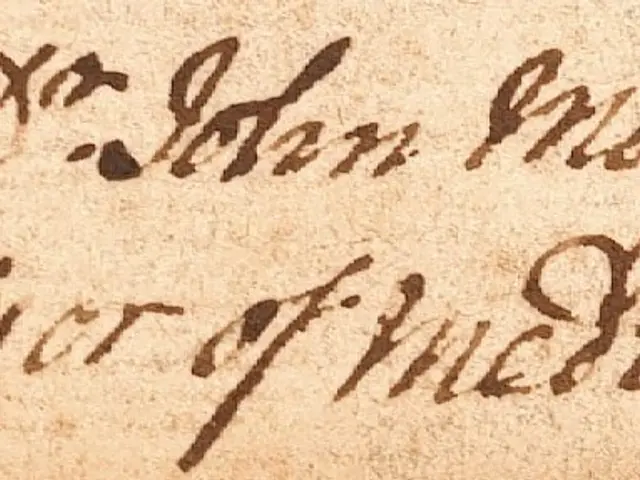 Dr. John Mo
sor of Medi